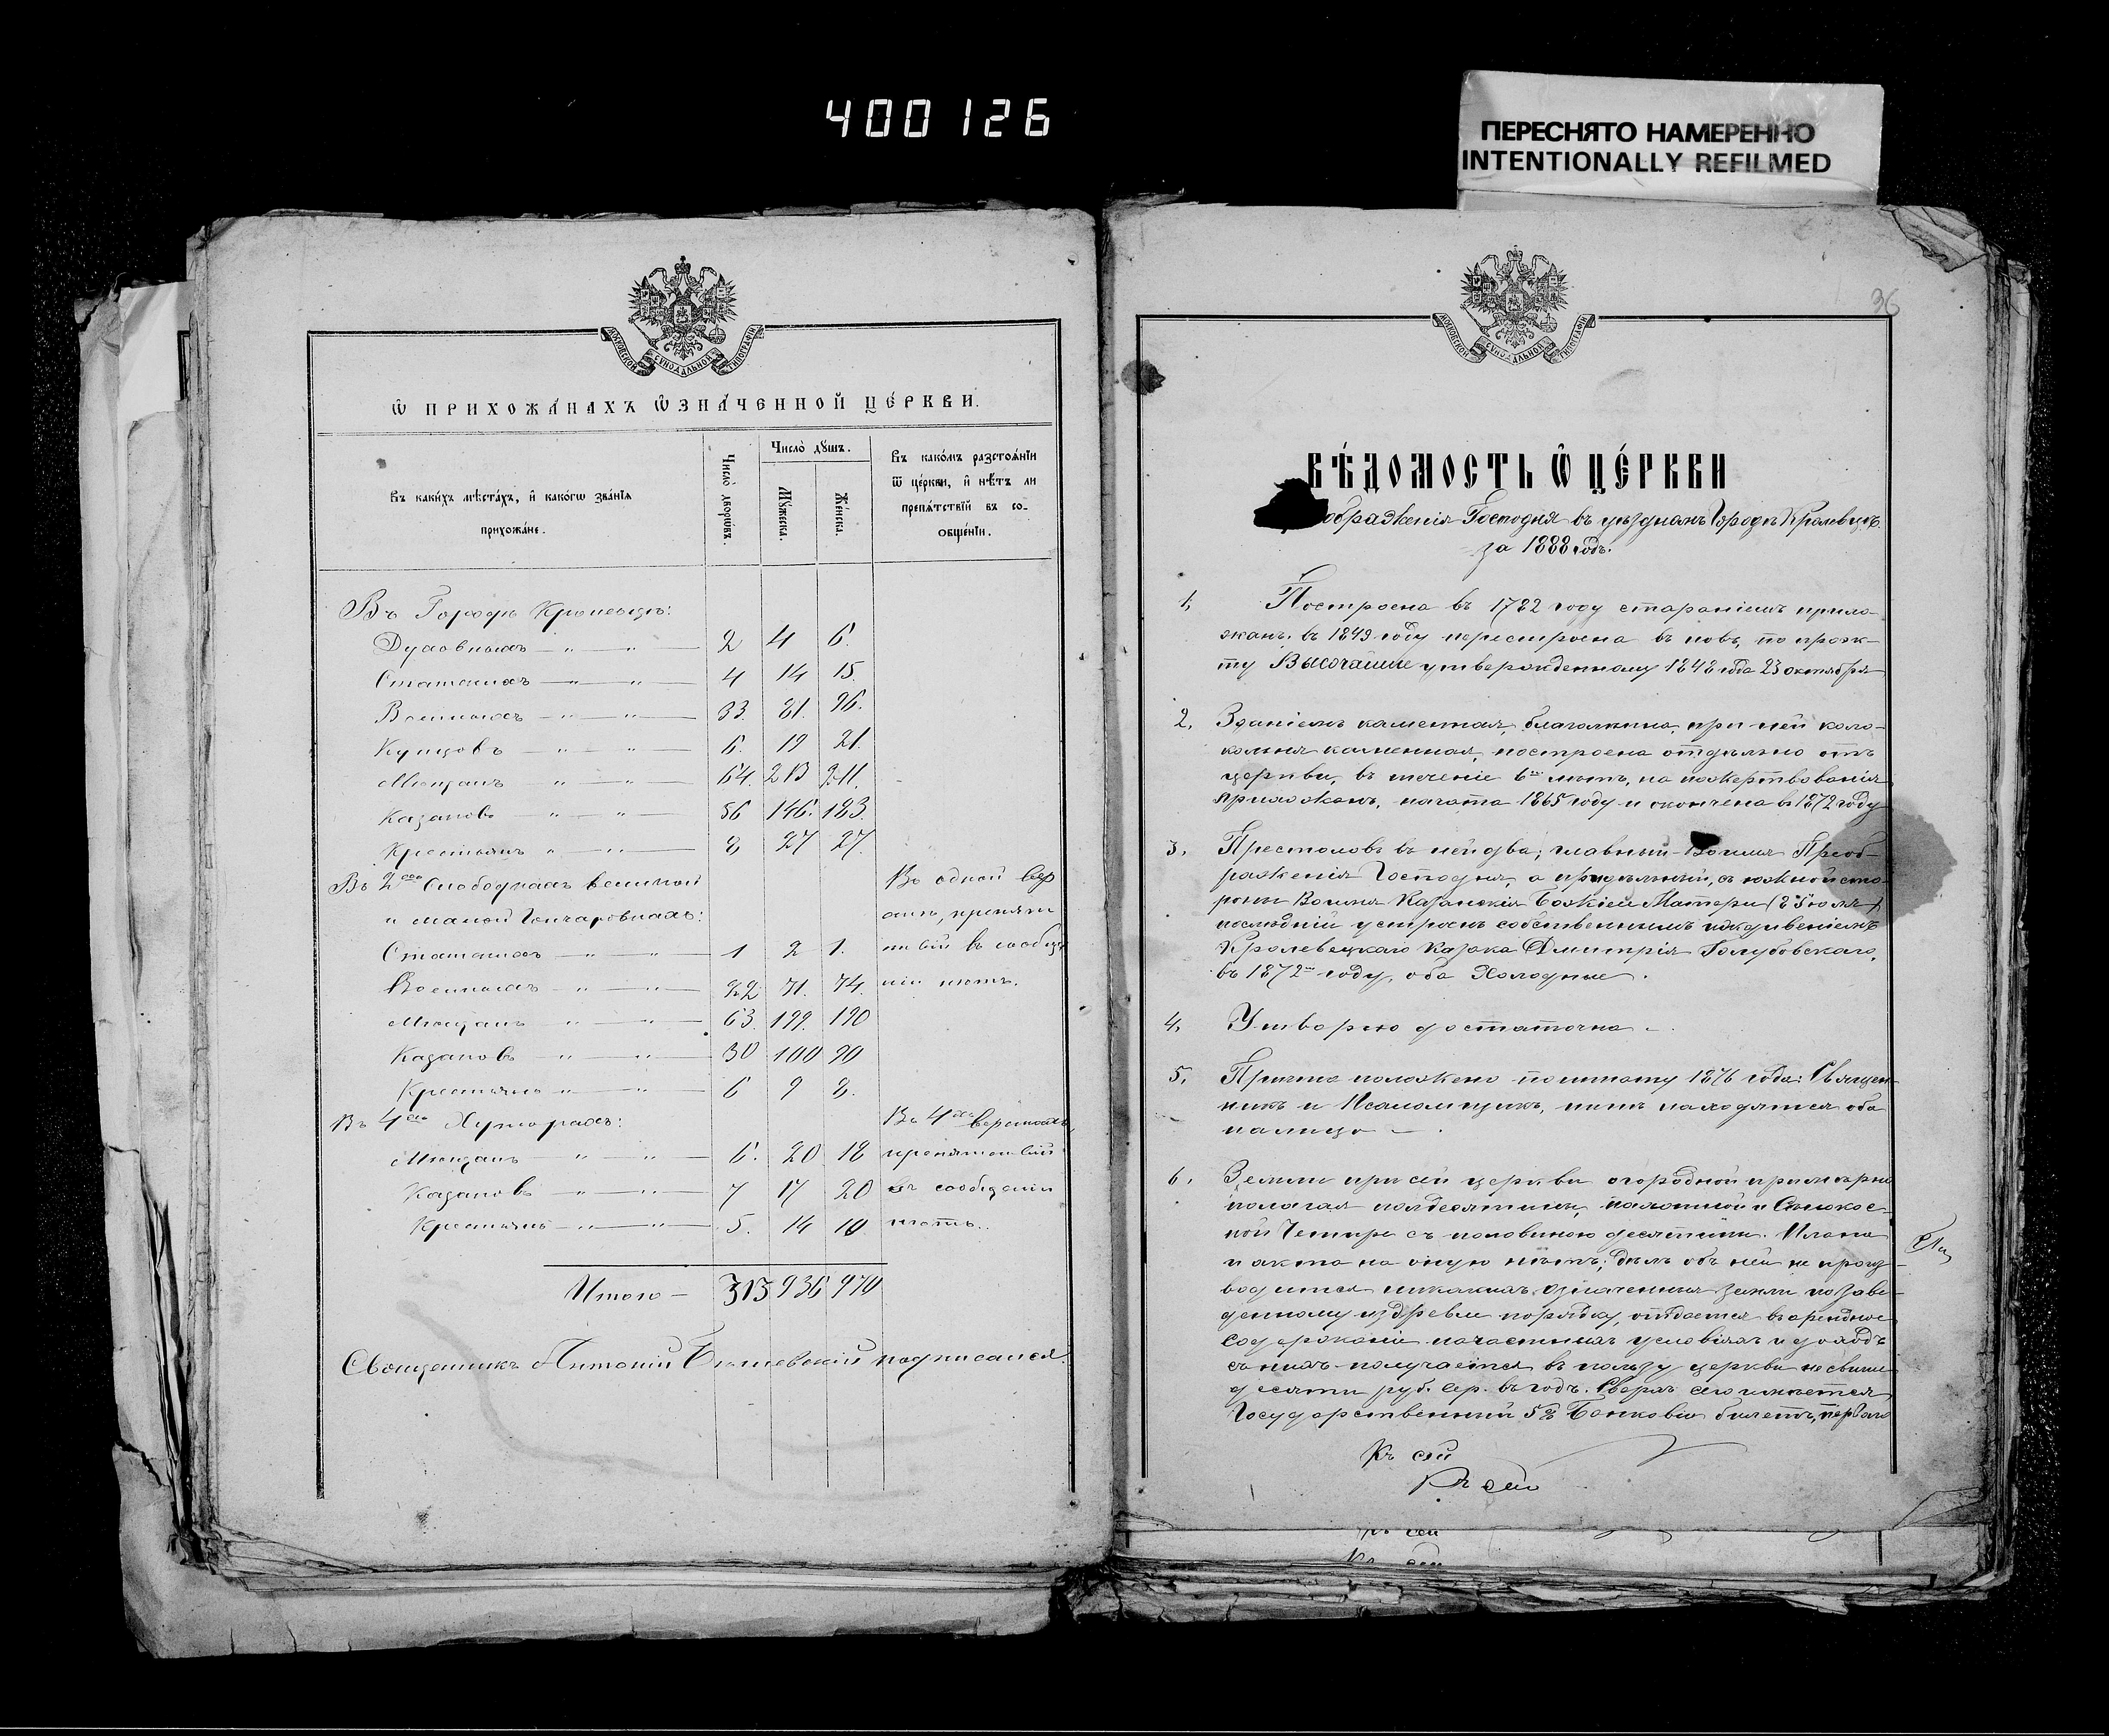 400126
ПЕРЕСНЯТО НАМЕРЕННО
INTENTIONALLY REFILMED
МОСКОВСКОЙ СУНОДАЛЬНОЙ ТИПОГРАФІИ
Ѡ ПРИХОЖА́НАХЪ ѠЗНА́ЧЕННОЙ ЦЕ́РКВИ.
Въ каки́хъ мѣста́хъ, и҆ како́гѡ зва́нїѧ прихожа́не.
Число̀ дворѡ́въ.
Число̀ дꙋ́шъ.
Мꙋ́жеска.
Же́нска.
Въ како́мъ разстоѧ́нїи ѿ це́ркви, и҆ нѣ́тъ ли препѧ́тствїй въ сообще́нїи.
Въ Городѣ Кролевцѣ:
Духовныхъ — „ — „ — 2 4 6.
Статскихъ — „ — „ — 4 14 15.
Военныхъ — „ — „ — 33. 81. 96.
Купцовъ — „ — „ — 6. 19 21.
Мѣщанъ — „ — „ — 64. 213 211.
Казаковъ — „ — „ — 56 146. 183.
Крестьянъ „ — „ — 8 27 27
Въ 2хъ Слободкахъ великой
и малой Гончаровкахъ:
Въ одной вер
стѣ, препят
Статскихъ — „ — „ — 1 2 1.
ствій въ сообще
Военныхъ — „ — „ — 22 71. 74.
ніи нѣтъ.
Мѣщанъ „ — „ — 63. 199. 190
Казаковъ — „ — „ — 30 100 90
Крестьянъ „ — „ — 6 9 8.
Въ 4хъ Хуторахъ:
Въ 4хъ верстахъ,
Мѣщанъ — „ — „ — 6. 20 18
препятствій
Казаковъ — „ — „ — 7 17 20
въ сообщеніи
Крестьянъ — „ — „ — 5. 14 10
нѣтъ..
Итого — 313 936 970
Священникъ Антоній подписался.
36
МОСКОВСКОЙ СУНОДАЛЬНОЙ ТИПОГРАФІИ
ВѢ́ДОМОСТЬ Ѡ ЦЕ́РКВИ
ображенія Господня въ уѣздномъ Городѣ Кролевцѣ.
за 1888 годъ.
1, Построена въ 1782 году стараніемъ прихо-
жанъ. въ 1849 году перестроена въ новѣ, по проэк-
ту Высочайше утвержденному 1848 года 23 октября
2. Зданіемъ каменная, благолѣпна, при ней коло-
кольня каменная, построена отдѣльно отъ
церкви, въ теченіе 6ти лѣтъ, на пожертвованія
прихожанъ, начата 1865 году и окончена въ 1872 году
3. Престоловъ въ ней два; главный Во имя Преоб-
раженія Господня, а придѣльный, съ южной сто-
роны Во имя Казанскія Божіей Матери (8 Іюля)
послѣдній устроенъ собственнымъ иждивеніемъ
Кролевецкаго Казака Дмитрія Голубовскаго,
въ 1872м году, оба Холодные.
4. Утварью достаточна —.
5. Причта положено по штату 1876 года: Священ-
никъ и Псаломщикъ, нынѣ находятся оба
на лицо —.
6. Земли при сей церкви огородной примѣрно
полагая полдесятины, пахотной и Сѣнокос-
ной Четыре съ половиною десятины. Плана
и акта на оную нѣтъ; дѣлъ объ ней не произ-
водится никакихъ. означенныя земли по заве-
денному издревле порядку, отдается въ арендное
содержаніе на частныхъ условіяхъ и доходъ
съ нихъ получается въ пользу церкви не свыше
десяти руб. сер. въ годъ. Сверхъ сего имѣется
Государственный 5% Банковый билетъ, перваго
Къ сей
Къ сей
Къ сей